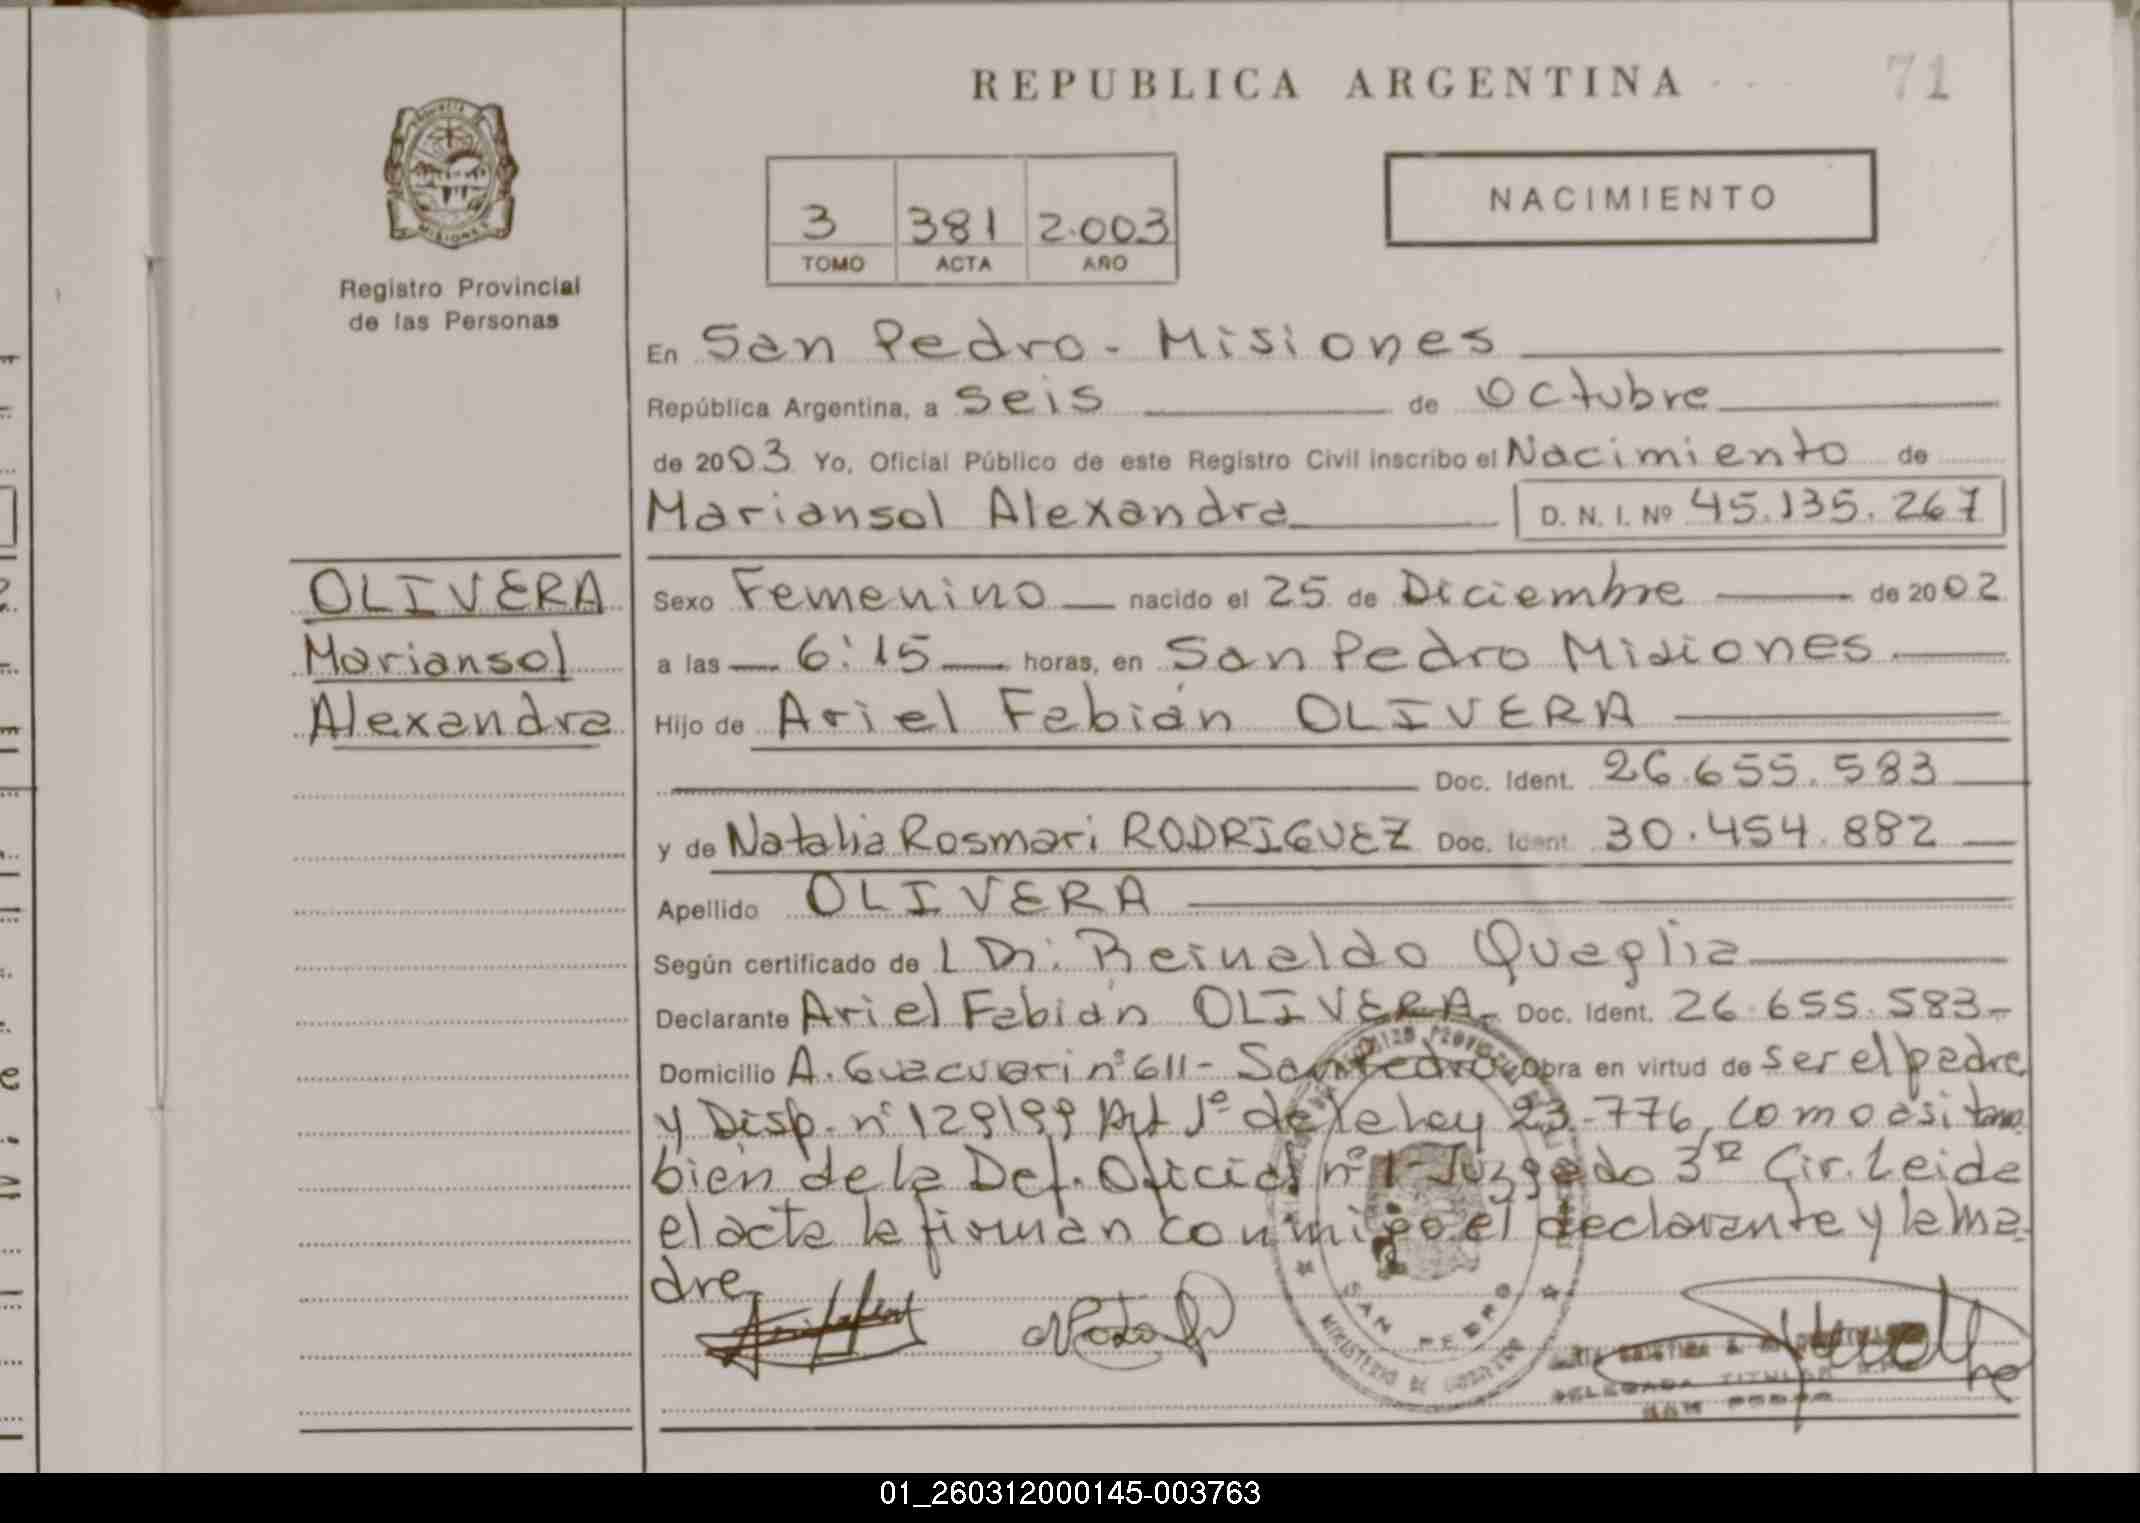 REPUBLICA ARGENTINA
71
MISIONES
Registro Provincial
de las Personas
3 381 2.003
TOMO ACTA AÑO
NACIMIENTO
En San Pedro - Misiones
República Argentina, a seis de Octubre
de 2003 Yo, Oficial Público de este Registro Civil inscribo el Nacimiento de
Mariansol Alexandra D. N. I. Nº 45.135.267
OLIVERA
Mariansol
Alexandra
Sexo Femenino nacido el 25 de Diciembre de 2002
a las 6:15 horas, en San Pedro Misiones
Hijo de Ariel Fabián OLIVERA
Doc. Ident. 26.655.583
y de Natalia Rosmari RODRIGUEZ Doc. Ident. 30.454.882
Apellido OLIVERA
Según certificado de l Dr. Reinaldo Quaglia
Declarante Ariel Fabián OLIVERA- Doc. Ident. 26.655.583-
Domicilio A. Guacurari nº 611- San Pedro Obra en virtud de ser el padre
y Disp. nº 129/99 Art 1º de la ley 23.776, como asi tam
bien de la Def. Oficial nº 1 - Juzgado 3ra Cir. Leida
el acta la firman conmigo el declarante y la ma-
dre
SAN PEDRO
MINISTERIO DE GOBIERNO
DELEGADA TITULAR
SAN PEDRO
01_260312000145-003763